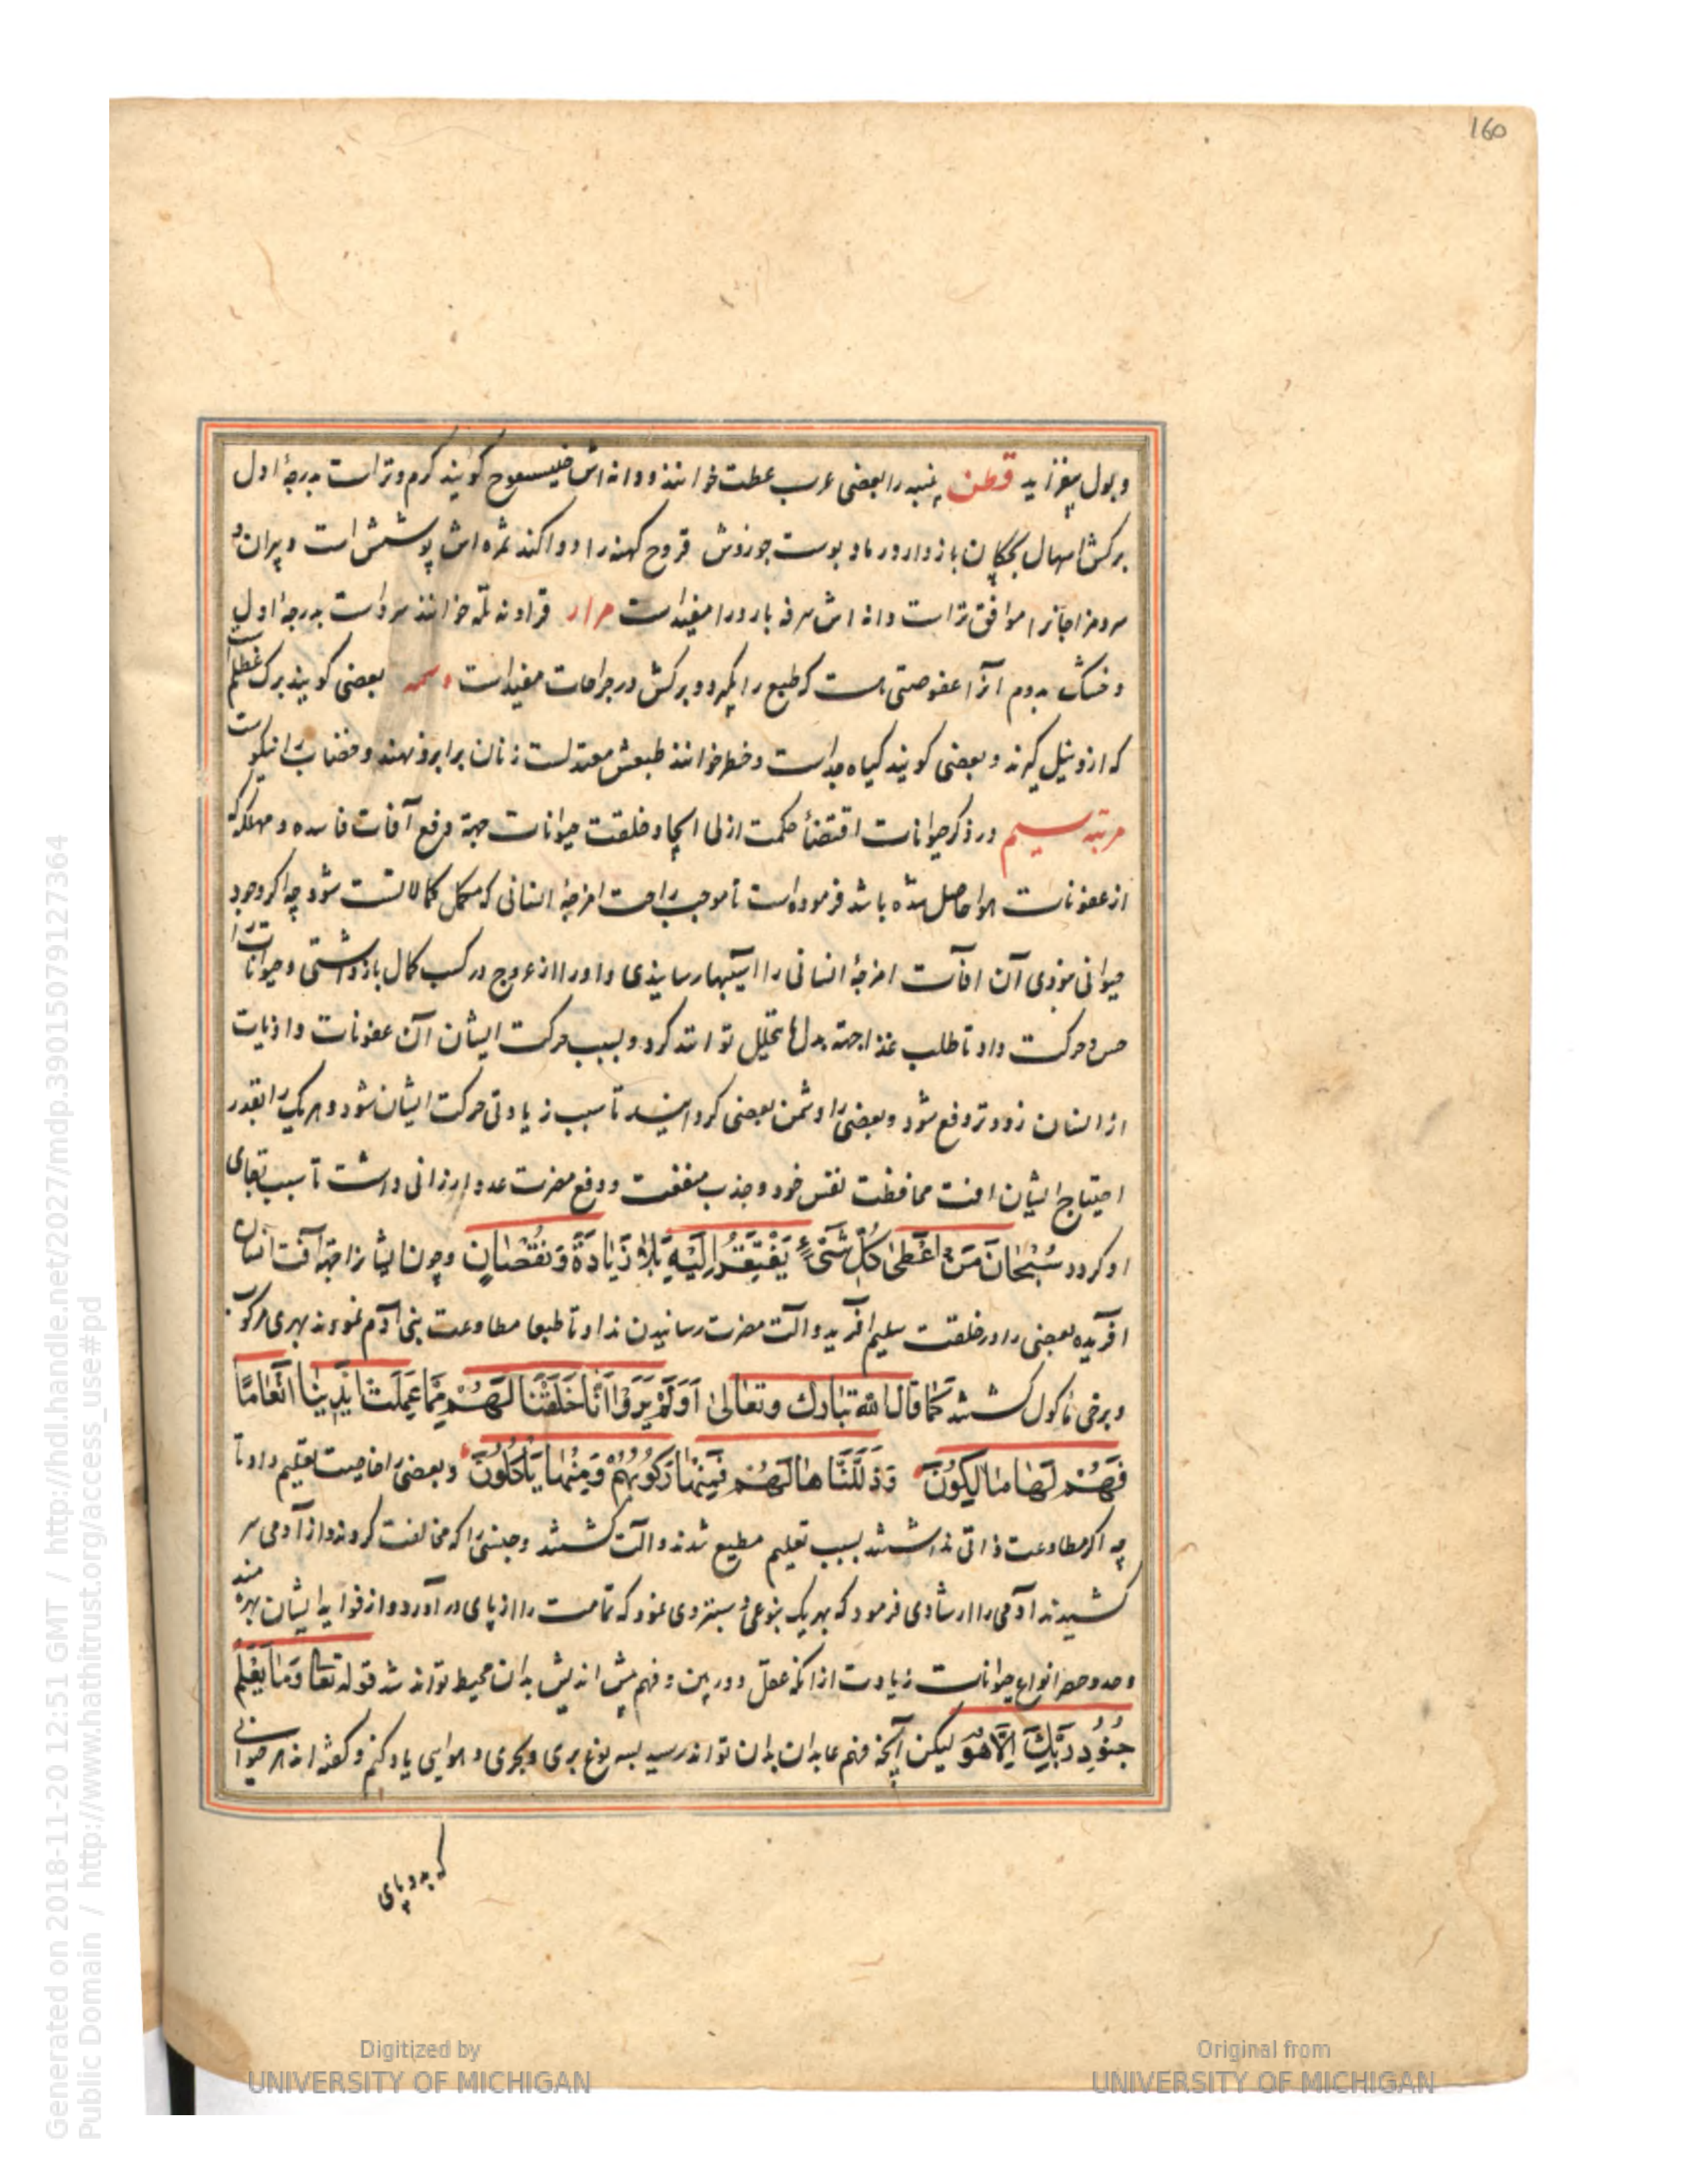 160
وبول بیفزاید قطن پنبه را بعضی عرب عطت خوانند و دانه اش خیسفوج کویند کرم و تر است بدرجهٔ اول
برکش اسهال بچکان باز دارد و رماد پوست جوزش قروح کهنه را دوا کند ثمره اش پوشش است و پیران و
سرد مزاجانرا موافق تر است دانه اش سرفه بارد را مفید است مرار خوانند سرد است بدرجهٔ اول
و خشک بدوم آنرا عفوصتی هست که طبع را بکیرد و برکش در جراحات مفید است وسمه بعضی کویند برک عظلم است
که ازو نیل کیرند و بعضی کویند کیاه جداست و خطر خوانند طبعش معتدلست زنان بر ابرو نهند و خضاب را نیکو است
مرتبه سیم در ذکر حیوانات اقتضأ حکمت ازلی ایجاد خلقت حیوانات جهة دفع آفات فاسده و مهلکه که
از عفونات هوا حاصل شده باشد فرموده است تا موجب راحت امزجهٔ انسانی که مکمل کمالاتست شود چه اکر وجود
حیوانی نبودی آن افآت امزجهٔ انسانی را آسیبها رسانیدی و او را از عروج در کسب کمال باز داشتی و حیوانات را
حس و حرکت داد تا طلب غذا جهة بدل ما یتحلل توانند کرد و بسبب حرکت ایشان آن عفونات و اذیات
از انسان زودتر دفع شود و بعضی را دشمن بعضی کردانید تا سبب زیادتی حرکت ایشان شود و هر یک را بقدر
احتیاج ایشان افت محافظت نفس خود و جذب منفعت و دفع مضرت عدو ارزانی داشت تا سبب بقای
او کردد سُبْحٰانَ مَنْ اَعْطٰی کُلَّ شَیْءٍ یَفْتَقِرُ اِلَیْهِ بِلٰا زَیٰادَةٍ وَ نُقْصٰانٍ و چون ایشانرا جهة آفت انسان
آفریده بعضی را در خلقت سلیم آفرید و آلت مضرت رسانیدن نداد تا طبعا مطاوعت بنی آدم نمودند بهری مرکوب
و برخی ماکول کشتند کَمٰا قٰالَ اللّٰه تَبٰارَكَ وتعٰالىٰ اَوَلَمْ یَرَوْا اَنّٰا خَلَقْنٰا لَهُمْ مِمّٰا عَمِلَتْ اَیْدِینٰا اَنْعٰامًا
فَهُمْ لَهٰا مٰالِکُونَ وَذَلَّلْنٰاهٰا لَهُمْ فَمِنْهٰا رَکُوبُهُمْ وَمِنْهٰا یَأْکُلُونَ و بعضی را خاصیت تعلیم داد تا
چه اکر مطاوعت ذاتی نداشتند بسبب تعلیم مطیع شدند و آلت کشتند و جنسی را که مخالفت کردند و از آدمی سر
کشیدند آدمی را ارشادی فرمود که بهر یک بنوعی دستبردی نمود که تمامت را از پای در آورد و از فواید ایشان بهره مند
و حد و حصر انواع حیوانات زیادت از انکه عقل دوربین و فهم پیش اندیش بدان محیط تواند شد قوله تعٰا وَمٰا یَعْلَمُ
جُنُودَ رَبِّكَ اِلَّا هُوَ لیکن آنچه فهم عابدان بدان تواند رسید بسه نوع بری و بحری و هوایی یاد کنم و کفته اند هر حیوانی
که بدو پای
Digitized by
UNIVERSITY OF MICHIGAN
Original from
UNIVERSITY OF MICHIGAN
Generated on 2018-11-20 12:51 GMT / http://hdl.handle.net/2027/mdp.39015079127364
Public Domain / http://www.hathitrust.org/access_use#pd